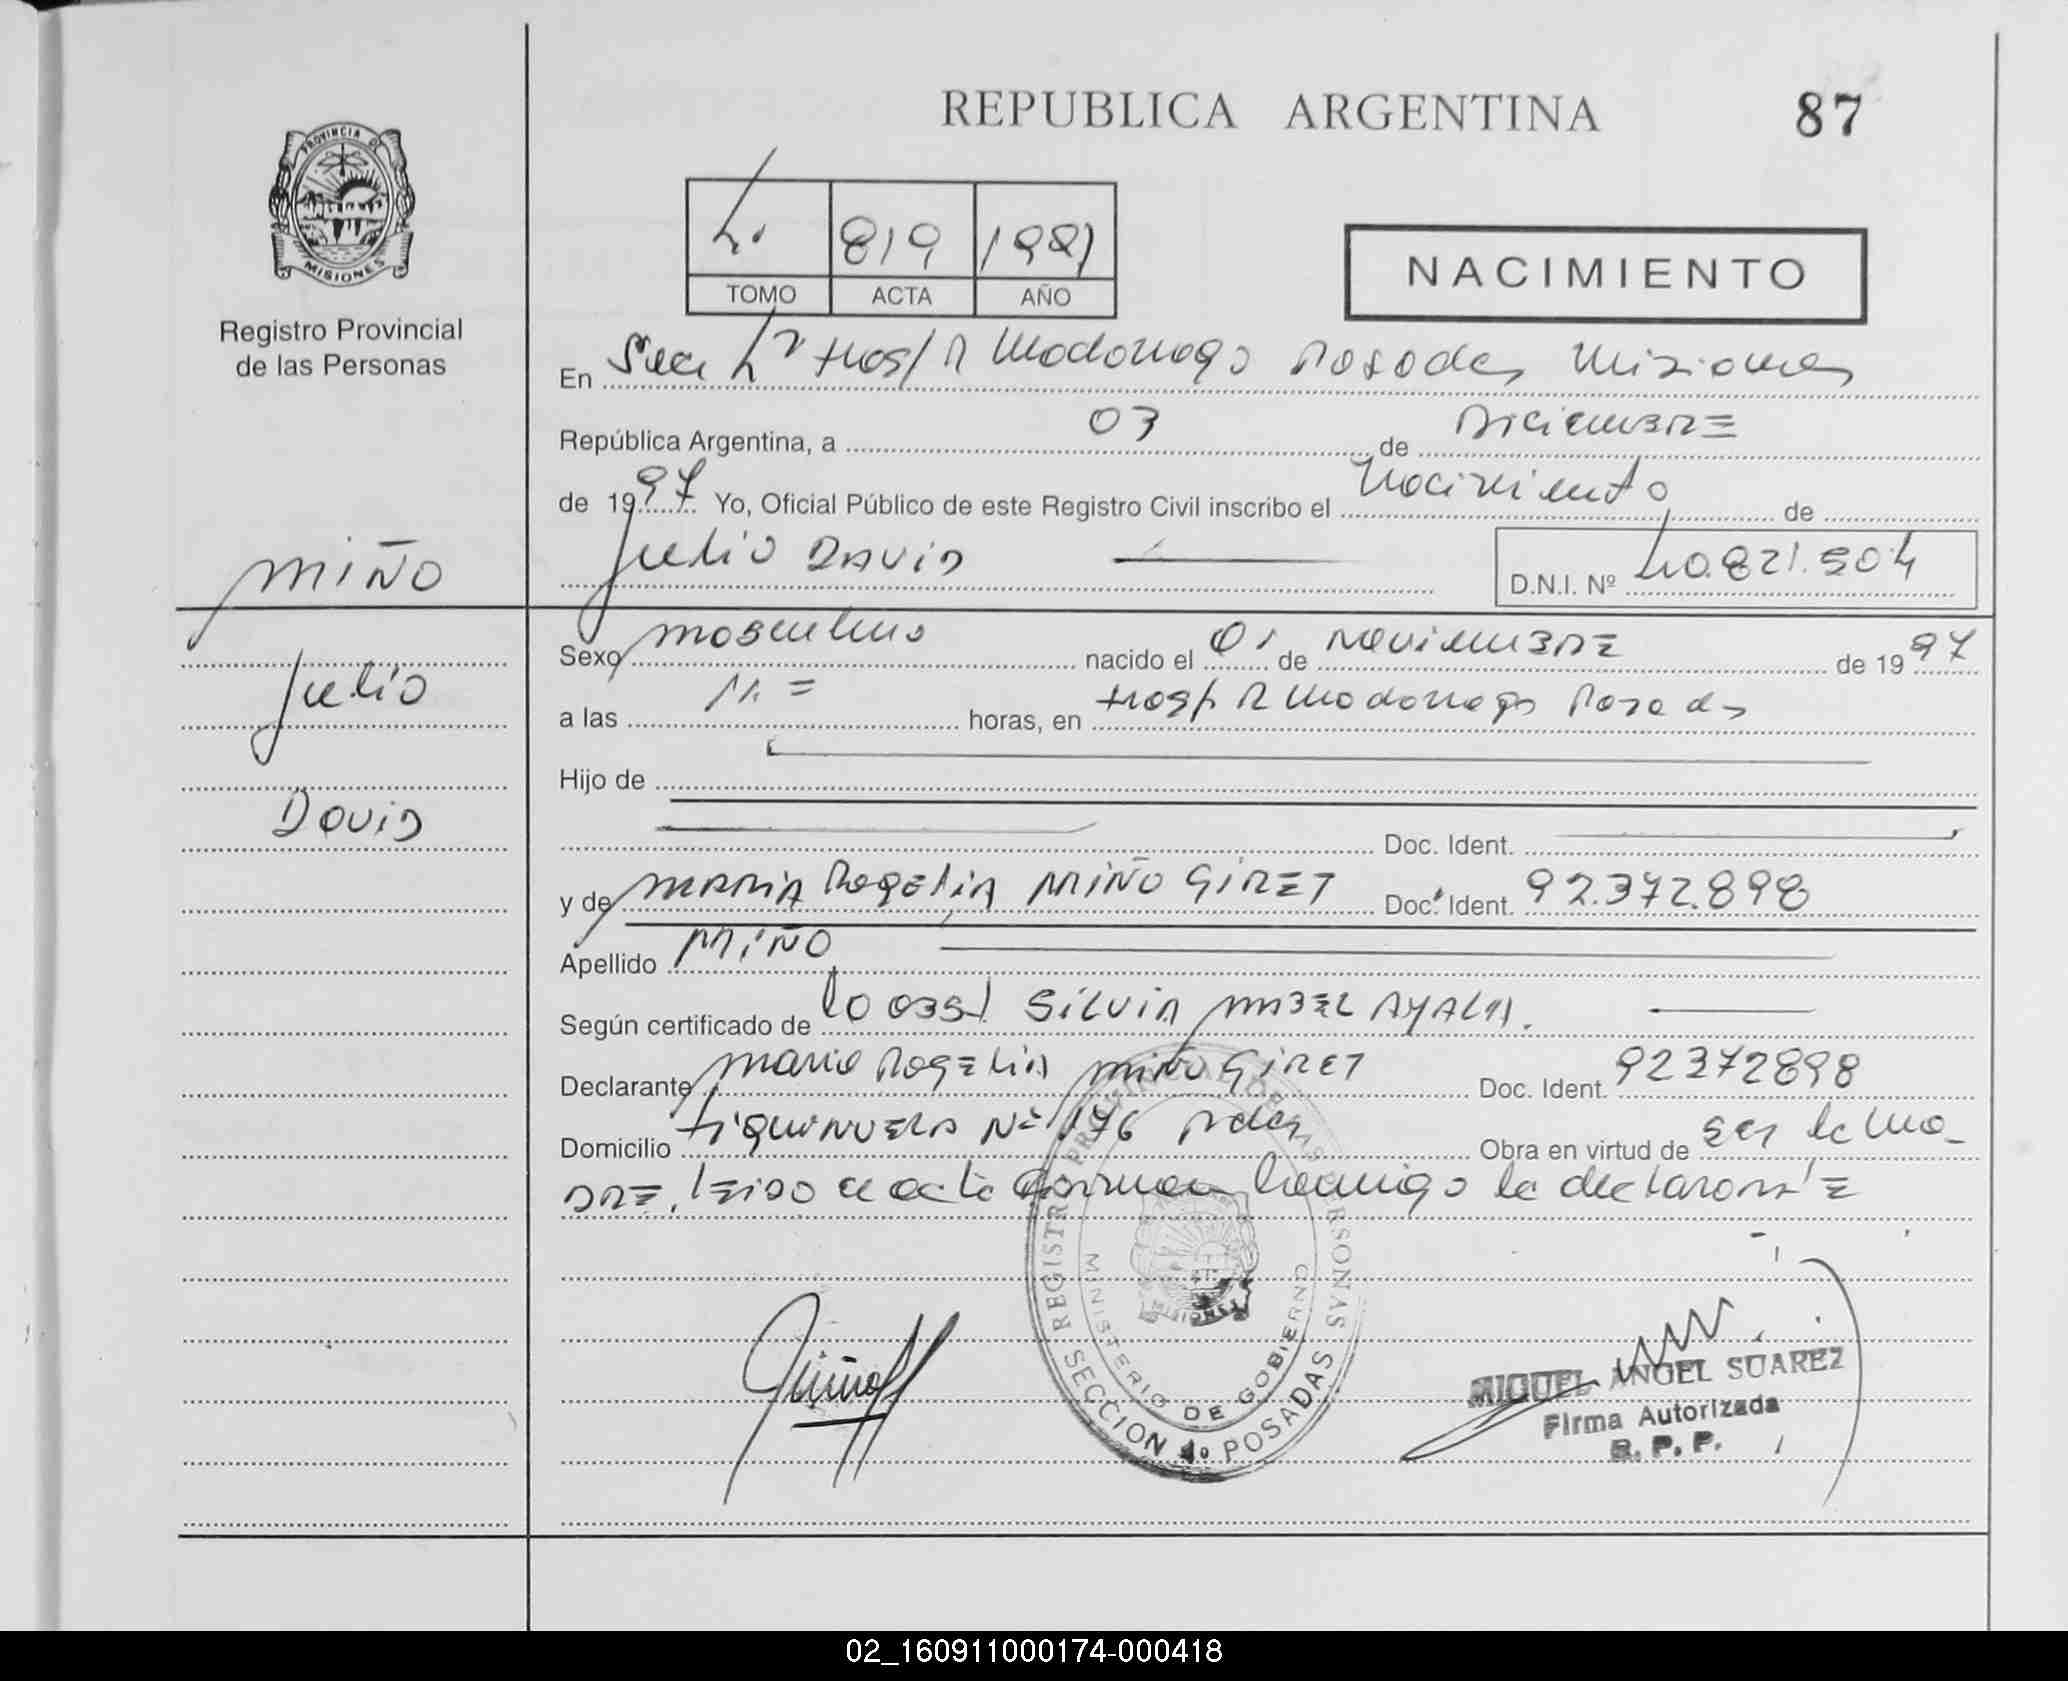 REPUBLICA ARGENTINA
87
PROVINCIA DE
MISIONES
Registro Provincial
de las Personas
819
TOMO ACTA AÑO
NACIMIENTO
En Secc 4ª Hosp R Madariaga Posadas Misiones
República Argentina, a 03 de Diciembre
de 1997 Yo, Oficial Público de este Registro Civil inscribo el Nacimiento de
Julio David
D.N.I. Nº 40.821.504
MIÑO
Julio
David
Sexo masculino nacido el 01 de Noviembre de 1997
a las 11.= horas, en Hosp R Madariaga Posadas
Hijo de
Doc. Ident.
y de MARIA Rogelia MIÑO GIRET Doc. Ident. 92.372.898
Apellido MIÑO
Según certificado de SILVIA MABEL AYALA.
Declarante Maria Rogelia Miño GIRET Doc. Ident. 92372898
Domicilio Nº 176 Pdas Obra en virtud de ser la ma-
dre, leido el acta firma conmigo la declarante
REGISTRO PROVINCIAL DE LAS PERSONAS
MISIONES
MINISTERIO DE GOBIERNO
SECCION 4º POSADAS
Miño
MIGUEL ANGEL SUAREZ
Firma Autorizada
R. P. P.
02_160911000174-000418